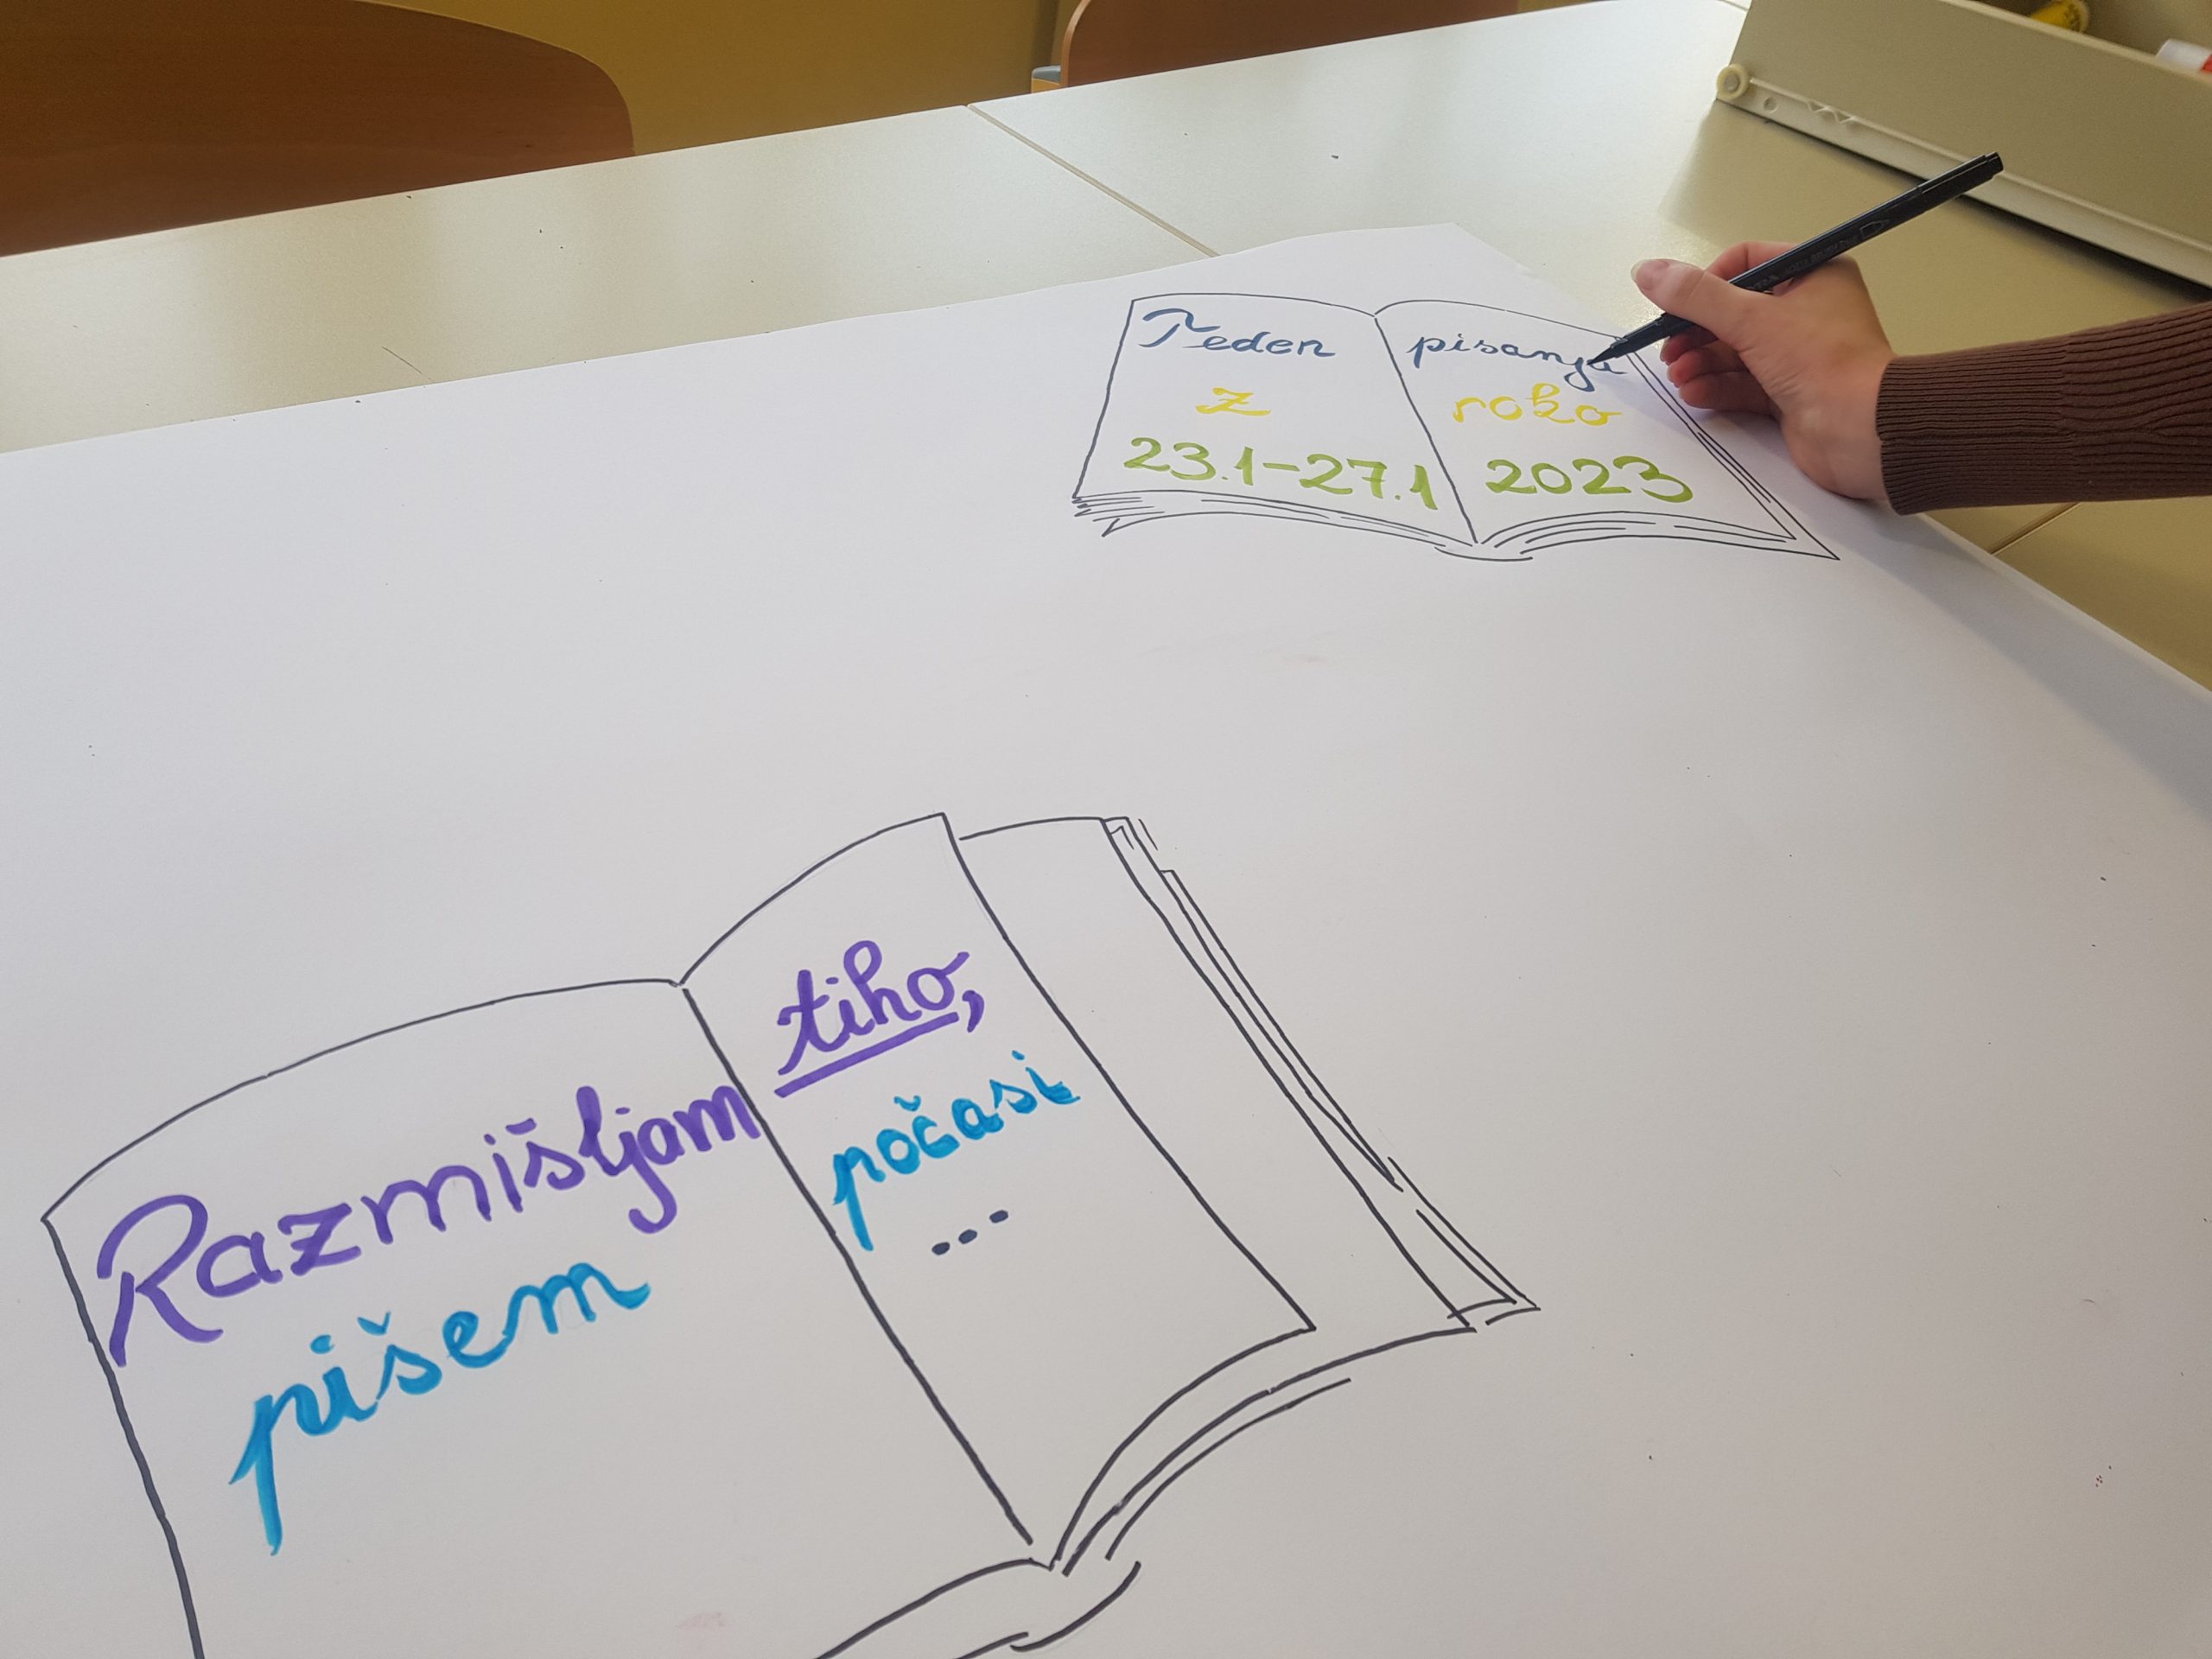 Teden pisanja
z roko
23.1-27.1 2023
Razmišljam tiho,
pišem počasi
...